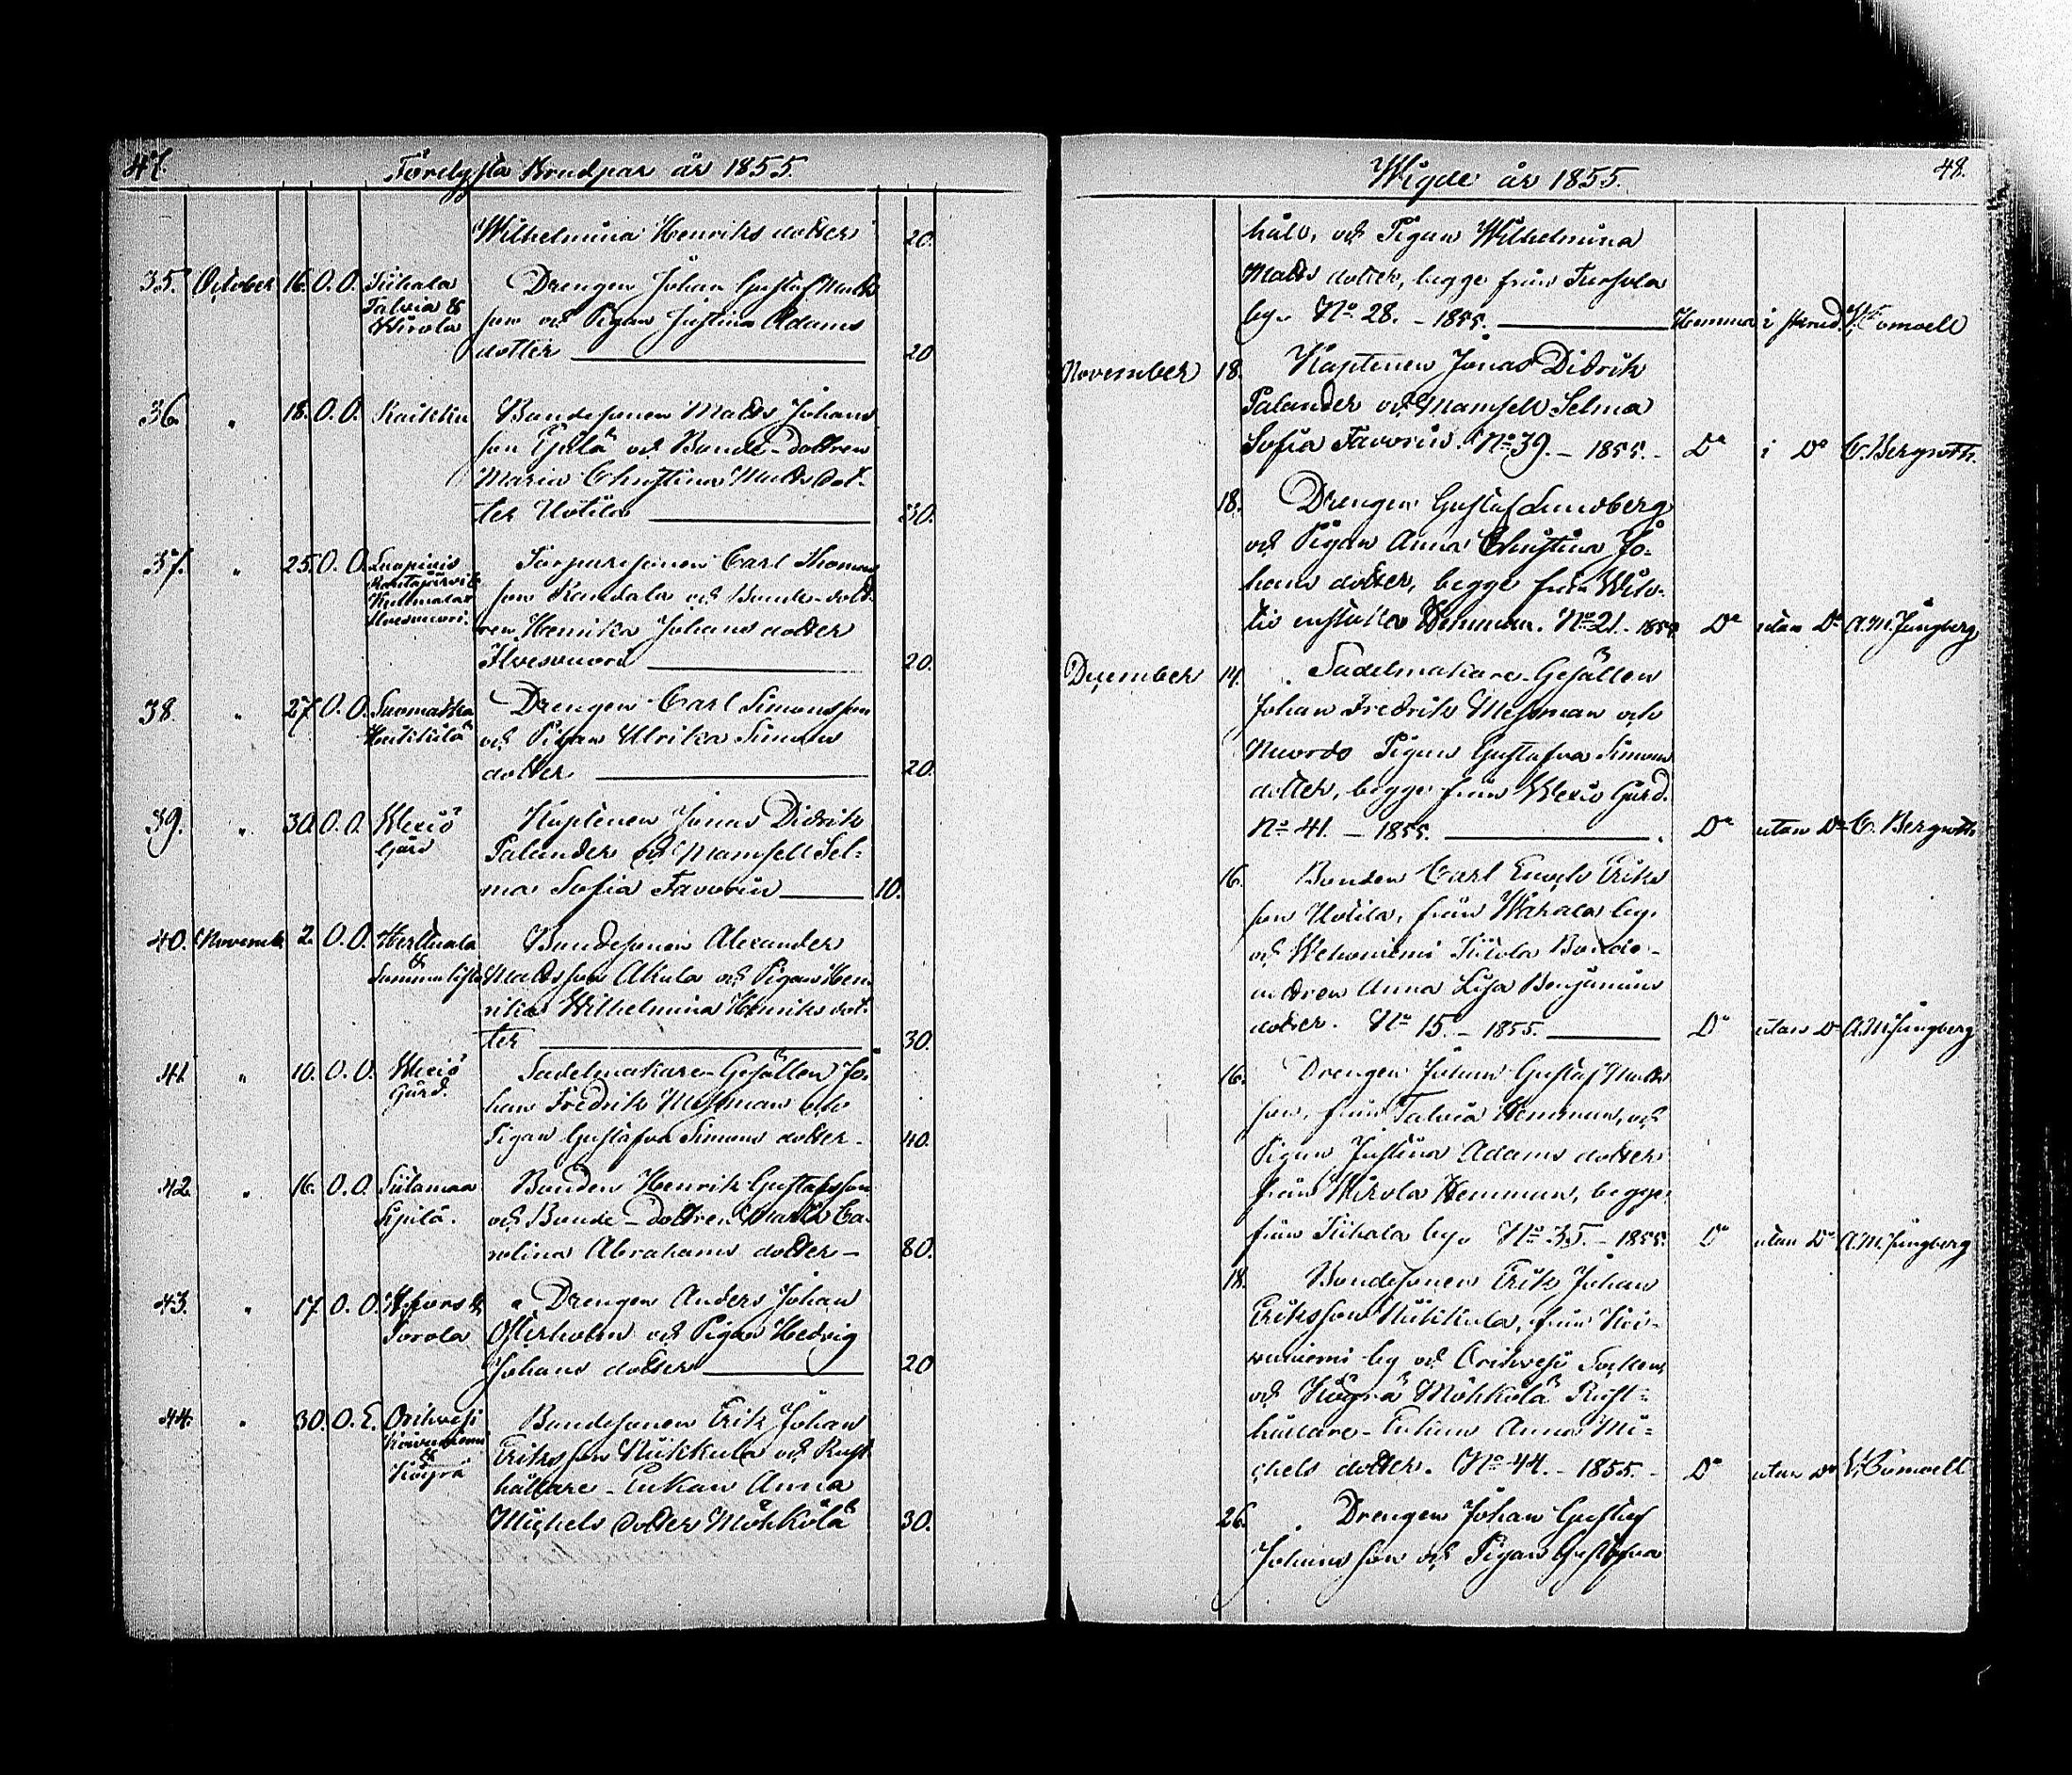 47.
Förelysta Brudpar år 1855.
Wilhelmina Henriks dotter 20.
35. October 16. O. O. Siihala Drengen Johan Gustaf Matts
Talvia & son och Pigan Justina Adams
Wirola dotter 20
36. " 18. O. O. Raikku Bondesonen Matts Johans
son Ejilä och Bonde-dottren
Maria Christina Matts dot-
ter Uotila 30.
37. " 25. O. O. Luopiois Torparesonen Carl Thomas
son Randala och Bonde-dott-
Kuttmalax ren Henrika Johans dotter
Ilvesvuori. Ilvesvuori 20.
38. " 27. O. O. Suomatka Drengen Carl Simonsson
och Pigan Ulrika Simons
dotter 20.
39. " 30. O. O. Wexiö Kaptenen Jonas Didrik
Gård Palander och Mamsell Sel-
ma Sofia Favorin 10.
40. Novemb. 2. O. O. Herttuala Bondesonen Alexander
& Mattsson Akula och Pigan Hen-
rika Wilhelmina Henriks dot-
ter 30.
41. " 10. O. O. Wexiö Sadelmakare-Gesällen Jo-
Gård. han Fredrik Messman och
Pigan Gustafva Simons dotter - 40.
42. " 16. O. O. Siilamaa Bonden Henrik Gustafsson
Sipilä. och Bonde-dottren Maria Ca-
rolina Abrahams dotter - 80.
43. " 17. O. O. Drengen Anders Johan
Sorola Österholm och Pigan Hedvig
Johans dotter 20
44. " 30. O. E. Orihvesi Bondesonen Erik Johan
Koivuniemi Eriksson Nükkula och Rust-
& Köyrä hållare-Enkan Anna
Michels dotter Möhkölä 30.
48.
Wigde år 1855.
håll, och Pigan Wilhelmina
Matts dotter, begge från Tursola
by. No 28. - 1855. Hemma i skrud.
November 18. Kaptenen Jonas Didrik
Palander och Mamsell Selma
Sofia Favorin. No 39. - 1855. - Do i Do C. Bergroth.
18. Drengen Gustaf Lundberg
och Pigan Anna Christina Jo-
hans dotter, begge från
enstaka Hemman. No 21. - 1855. Do utan Do A.M. Jungberg
December 14. Sadelmakare-Gesällen
Johan Fredrik Messman och
Pigan Gustafva Simons
dotter, begge från Wexiö Gård.
No 41. - 1855. Do utan Do C. Bergroth
16. Bonden Carl Enoch Eriks
son Uotila, från Wahala by,
och Wehoniemi Bonde-
Anna Lisa Benjamins
dotter. No 15. - 1855. Do utan Do A.M. Jungberg
16. Drengen Johan Gustaf Matts
son, från Talvia Hemman, och
Pigan Justina Adams dotter
från Wirola Hemman, begge
från Siihala by. No 35. - 1855. Do utan Do A.M. Jungberg
18. Bondesonen Erik Johan
Eriksson Nükkula, från Koi-
vuniemi by och Orihvesi Socken,
och Köyrä Möhkölä Rust-
hållare-Enkan Anna Mi-
chels dotter. No 44. - 1855. - Do utan Do
26. Drengen Johan Gustaf
Johansson och Pigan Gustafva